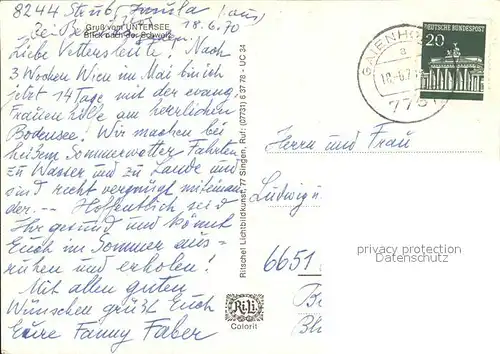 8244 Strub, (aus)
18.6.70
Gruß vom UNTERSEE
Blick nach der Schweiz
Liebe Vettersleute! Nach
3 Wochen Wien im Mai bin ich
jetzt 14 Tage mit der evang.
Frauenhilfe am herrlichen
Bodensee! Wir machen bei
heißem Sommerwetter Fahrten
zu Wasser und zu Lande und
sind recht vergnügt miteinan
der. -- Hoffentlich seid
Ihr gesund und könnt
Euch im Sommer aus-
ruhen und erholen!
Mit allen guten
Wünschen grüßt Euch
Eure Fanny Faber
Ritschel Lichtbildkunst, 77 Singen, Ruf: (07731) 6 37 78 - UC 34
RiLi
Colorit
GAIENHO
a
18.-6.7
775
20
DEUTSCHE BUNDESPOST
Herrn und Frau
Ludwig u
privacy protection
Datenschutz
6651